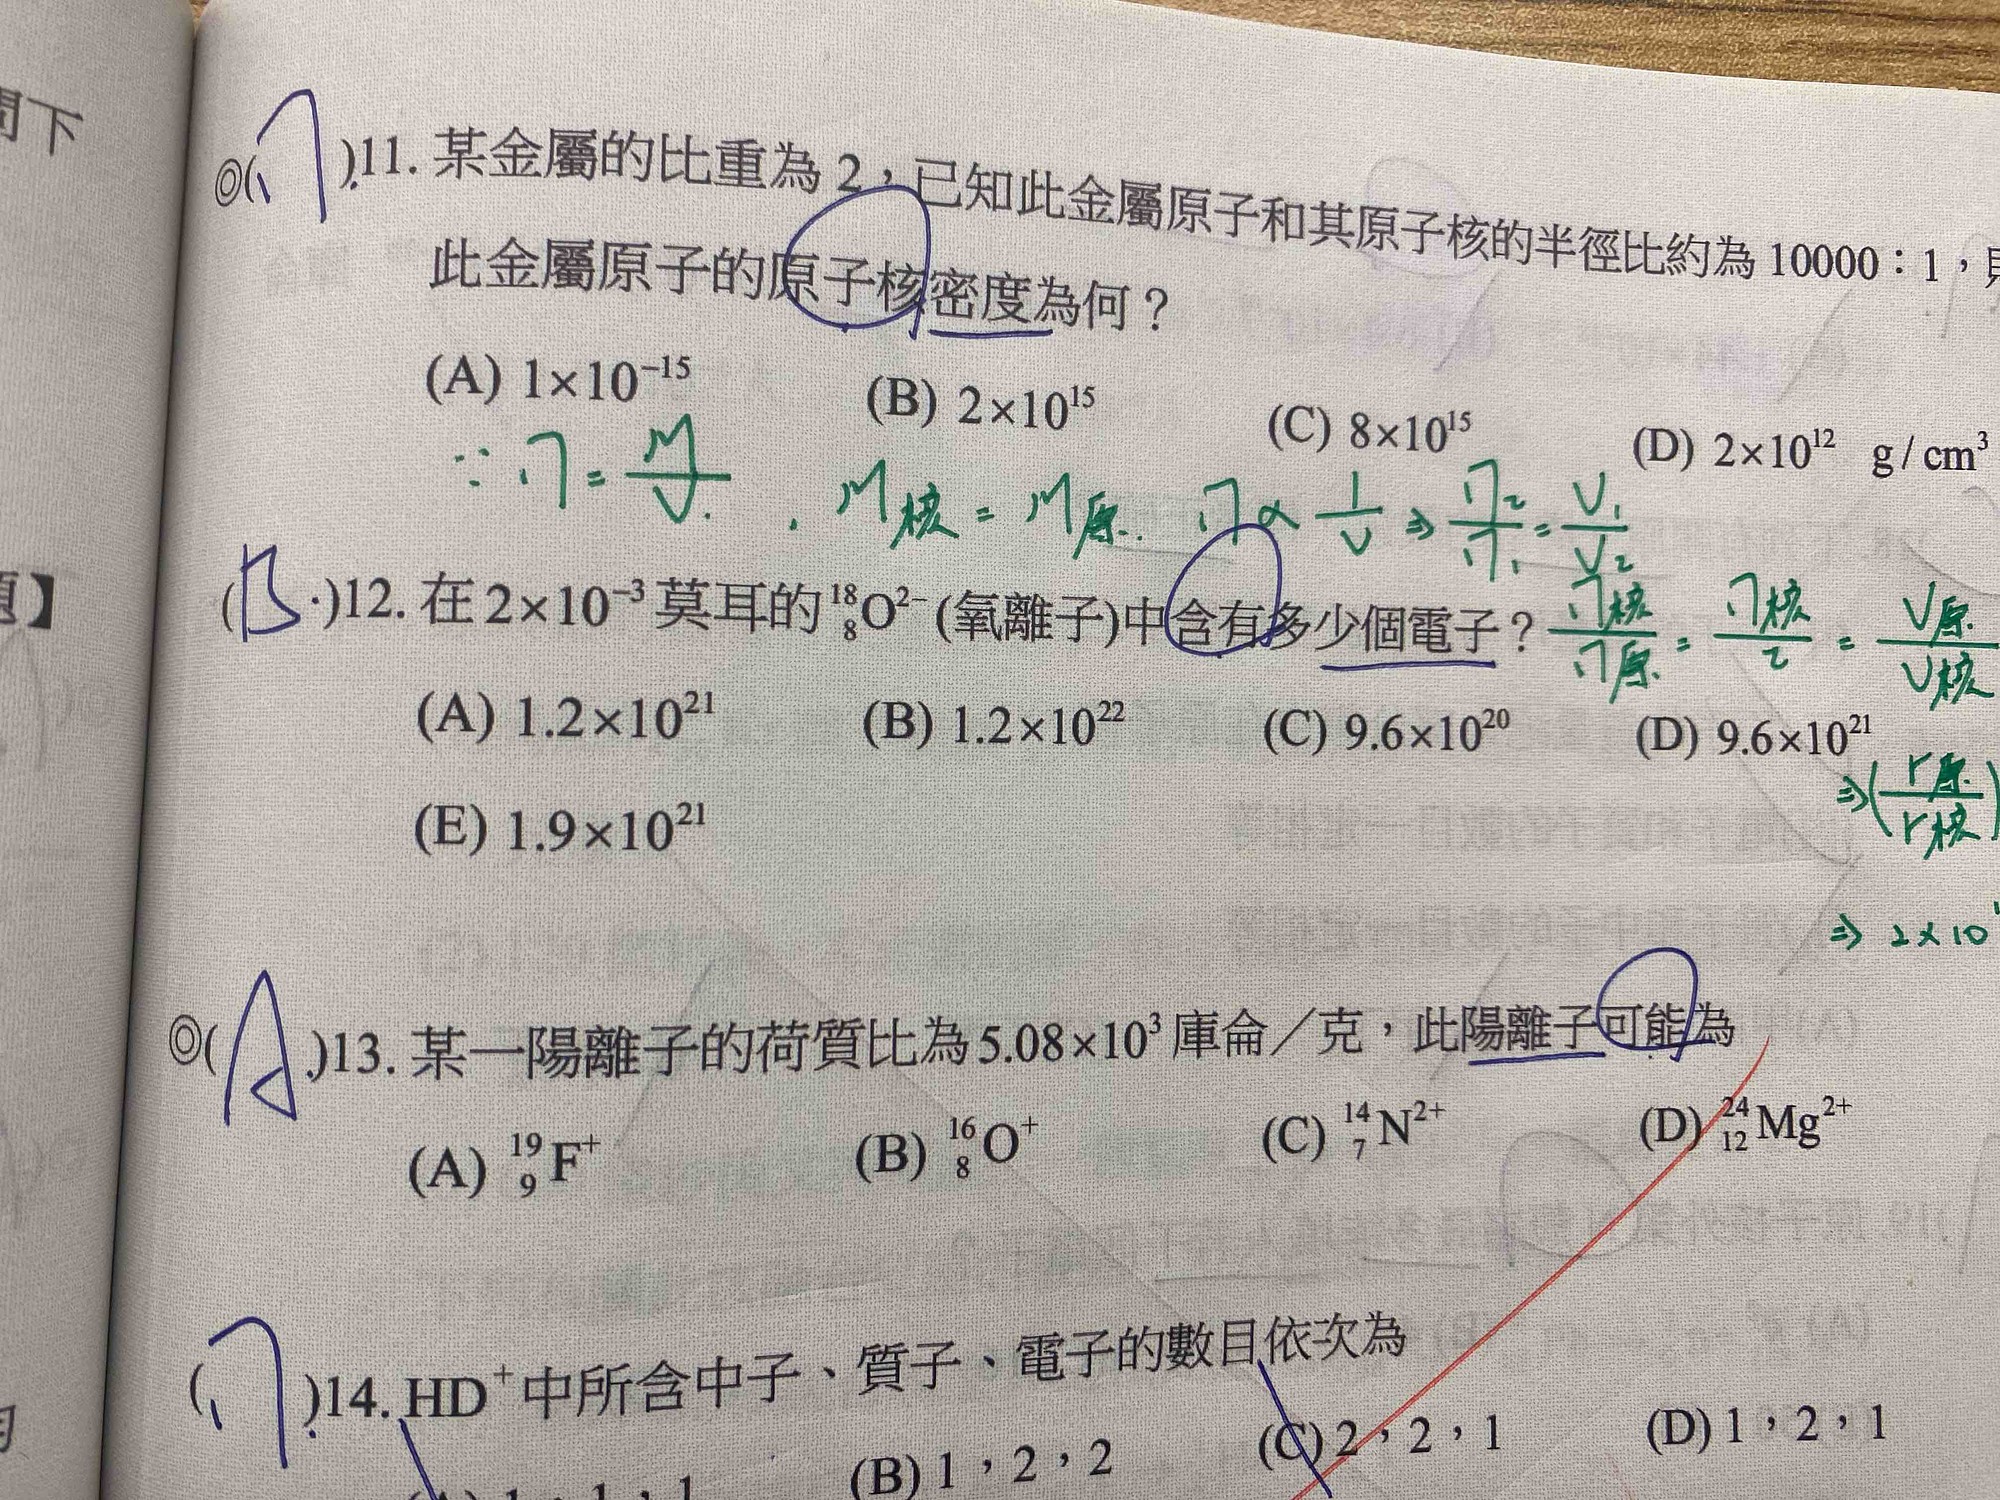 問下
◎(D.)11. 某金屬的比重為 2，已知此金屬原子和其原子核的半徑比約為 10000：1，
此金屬原子的原子核密度為何？
(A) 1×10⁻¹⁵ (B) 2×10¹⁵ (C) 8×10¹⁵ (D) 2×10¹² g / cm³
∵ D = M/V. , M核 = M原. D ∝ 1/V ⇒ D₂/D₁ = V₁/V₂
(B.)12. 在 2×10⁻³ 莫耳的 ¹⁸₈O²⁻ (氧離子)中含有多少個電子？
D核/D原 = D核/2 = V原/V核
(A) 1.2×10²¹ (B) 1.2×10²² (C) 9.6×10²⁰ (D) 9.6×10²¹
⇒ (r原/r核)
(E) 1.9×10²¹
⇒ 2×10
◎(A.)13. 某一陽離子的荷質比為 5.08×10³ 庫侖／克，此陽離子可能為
(A) ¹⁹₉F⁺ (B) ¹⁶₈O⁺ (C) ¹⁴₇N²⁺ (D) ²⁴₁₂Mg²⁺
(D.)14. HD⁺ 中所含中子、質子、電子的數目依次為
(A) 1，1，1 (B) 1，2，2 (C) 2，2，1 (D) 1，2，1